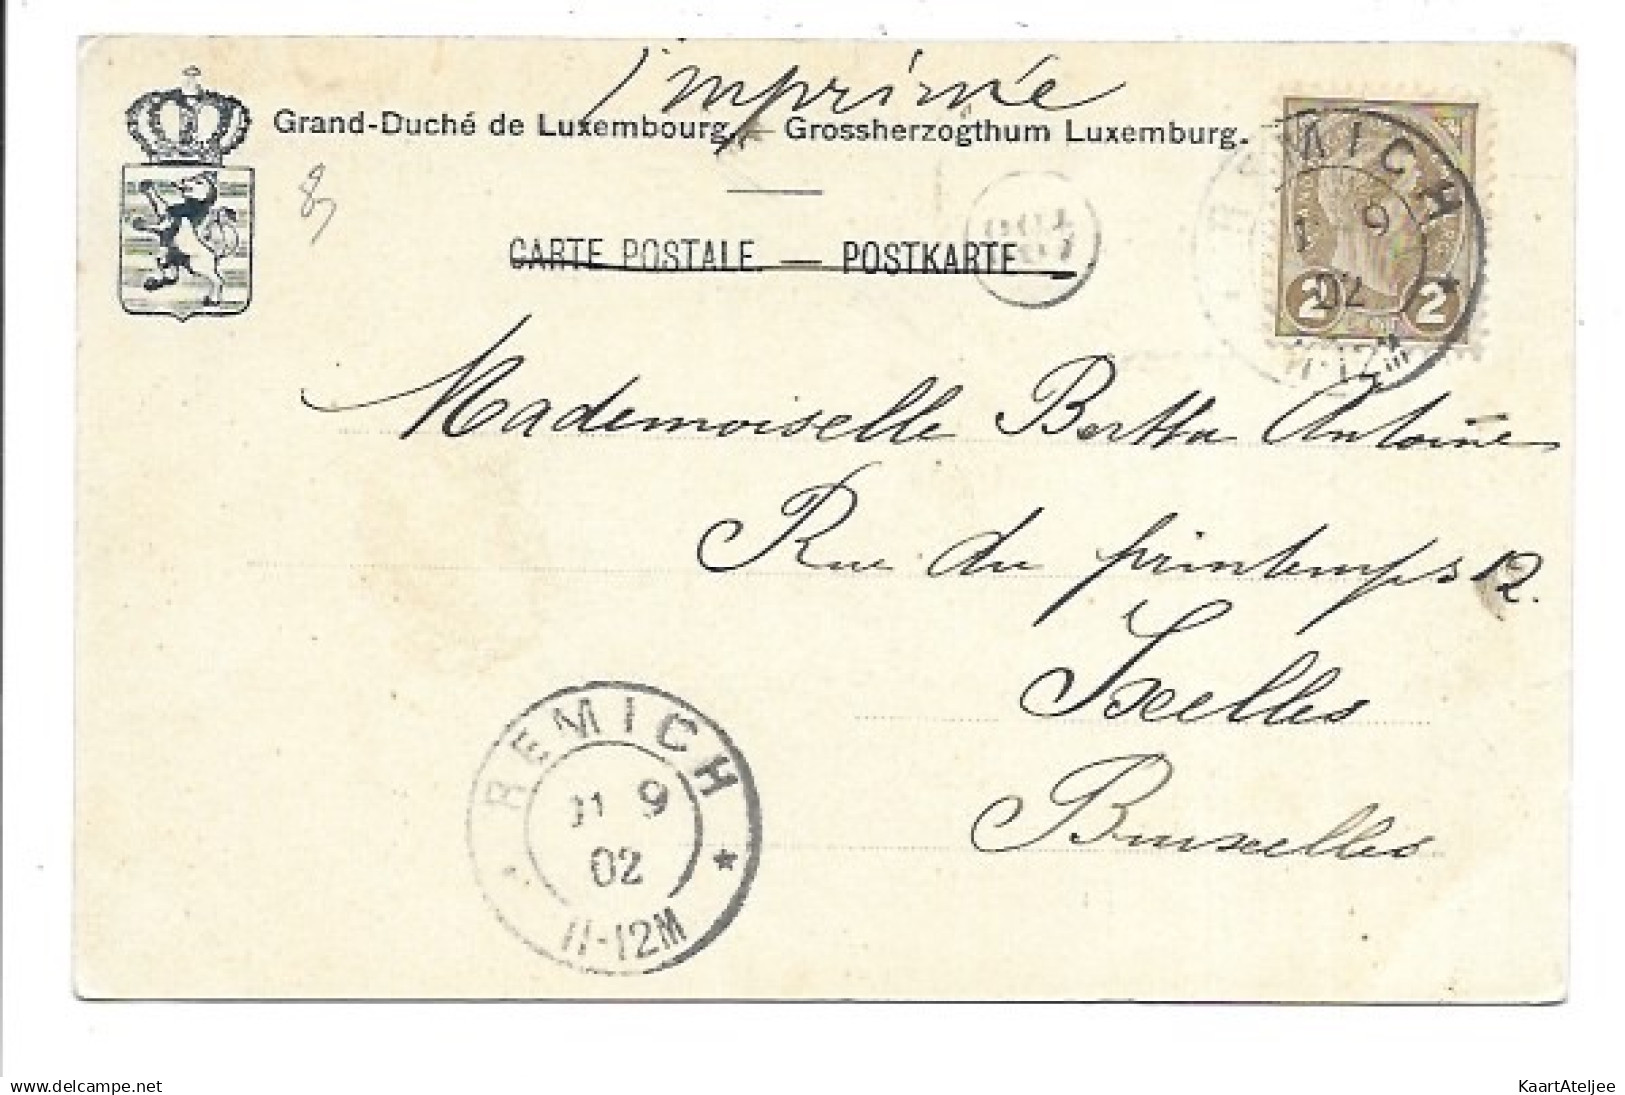 Imprimé
Grand-Duché de Luxembourg. — Grossherzogthum Luxemburg.
CARTE POSTALE. — POSTKARTE
REMICH
1 9
02
11-12M
2 2
Mademoiselle Bertha Antoine
Rue du printemps 12.
Ixelles
Bruxelles
REMICH
11 9
02
11-12M
www.delcampe.net
KaartAteljee